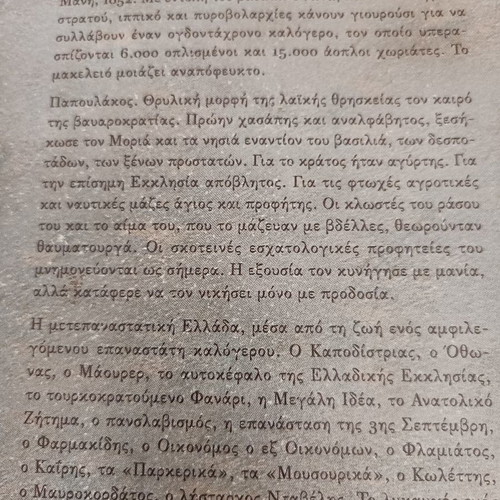 Μάνη, 1852.
στρατού, ιππικό και πυροβολαρχίες κάνουν γιουρούσι για να
συλλάβουν έναν ογδοντάχρονο καλόγερο, τον οποίο υπερα-
σπίζονται 6.000 οπλισμένοι και 15.000 άοπλοι χωριάτες. Το
μακελειό μοιάζει αναπόφευκτο.
Παπουλάκος. Θρυλική μορφή της λαϊκής θρησκείας τον καιρό
της βαυαροκρατίας. Πρώην χασάπης και αναλφάβητος, ξεσή-
κωσε τον Μοριά και τα νησιά εναντίον του βασιλιά, των δεσπο-
τάδων, των ξένων προστατών. Για το κράτος ήταν αγύρτης. Για
την επίσημη Εκκλησία απόβλητος. Για τις φτωχές αγροτικές
και ναυτικές μάζες άγιος και προφήτης. Οι κλωστές του ράσου
του και το αίμα του, που το μάζευαν με βδέλλες, θεωρούνταν
θαυματουργά. Οι σκοτεινές εσχατολογικές προφητείες του
μνημονεύονται ως σήμερα. Η εξουσία τον κυνήγησε με μανία,
αλλά κατάφερε να τον νικήσει μόνο με προδοσία.
Η μετεπαναστατική Ελλάδα, μέσα από τη ζωή ενός αμφιλε-
γόμενου επαναστάτη καλόγερου. Ο Καποδίστριας, ο Όθω-
νας, ο Μάουρερ, το αυτοκέφαλο της Ελλαδικής Εκκλησίας,
το τουρκοκρατούμενο Φανάρι, η Μεγάλη Ιδέα, το Ανατολικό
Ζήτημα, ο πανσλαβισμός, η επανάσταση της 3ης Σεπτέμβρη,
ο Φαρμακίδης, ο Οικονόμος ο εξ Οικονόμων, ο Φλαμιάτος,
ο Καΐρης, τα «Παρκερικά», τα «Μουσουρικά», ο Κωλέττης,
ο Μαυροκορδάτος, ο λήσταρχος Νταβέλης.